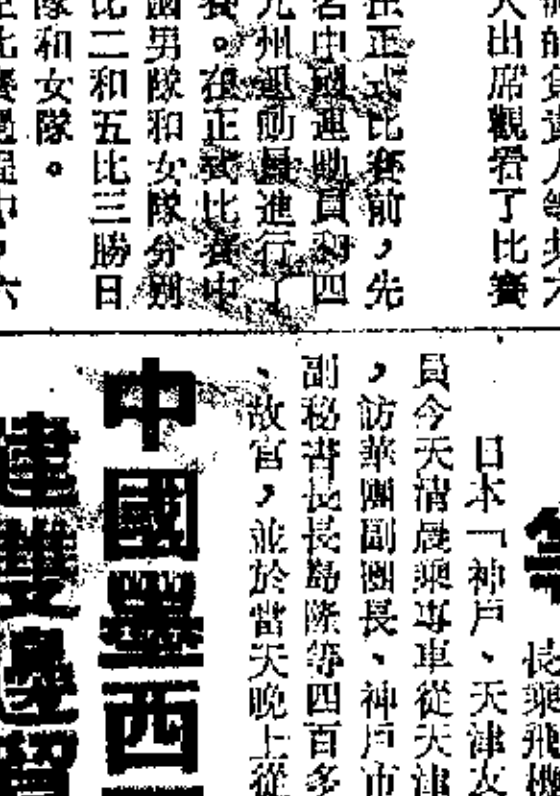 人出席觀看了比賽
在正式比賽前，先
名中國運動員和四
九州運動員進行了
賽。在正式比賽中
國男隊和女隊分別
比二和五比三勝日
隊和女隊。
長乘飛機
日本「神戶、天津友
員今天清晨乘專車從天津
，訪華團副團長、神戶市
副秘書長長島隆等四百多
、故宮，並於當天晚上從
中國墨西
建雙邊貿